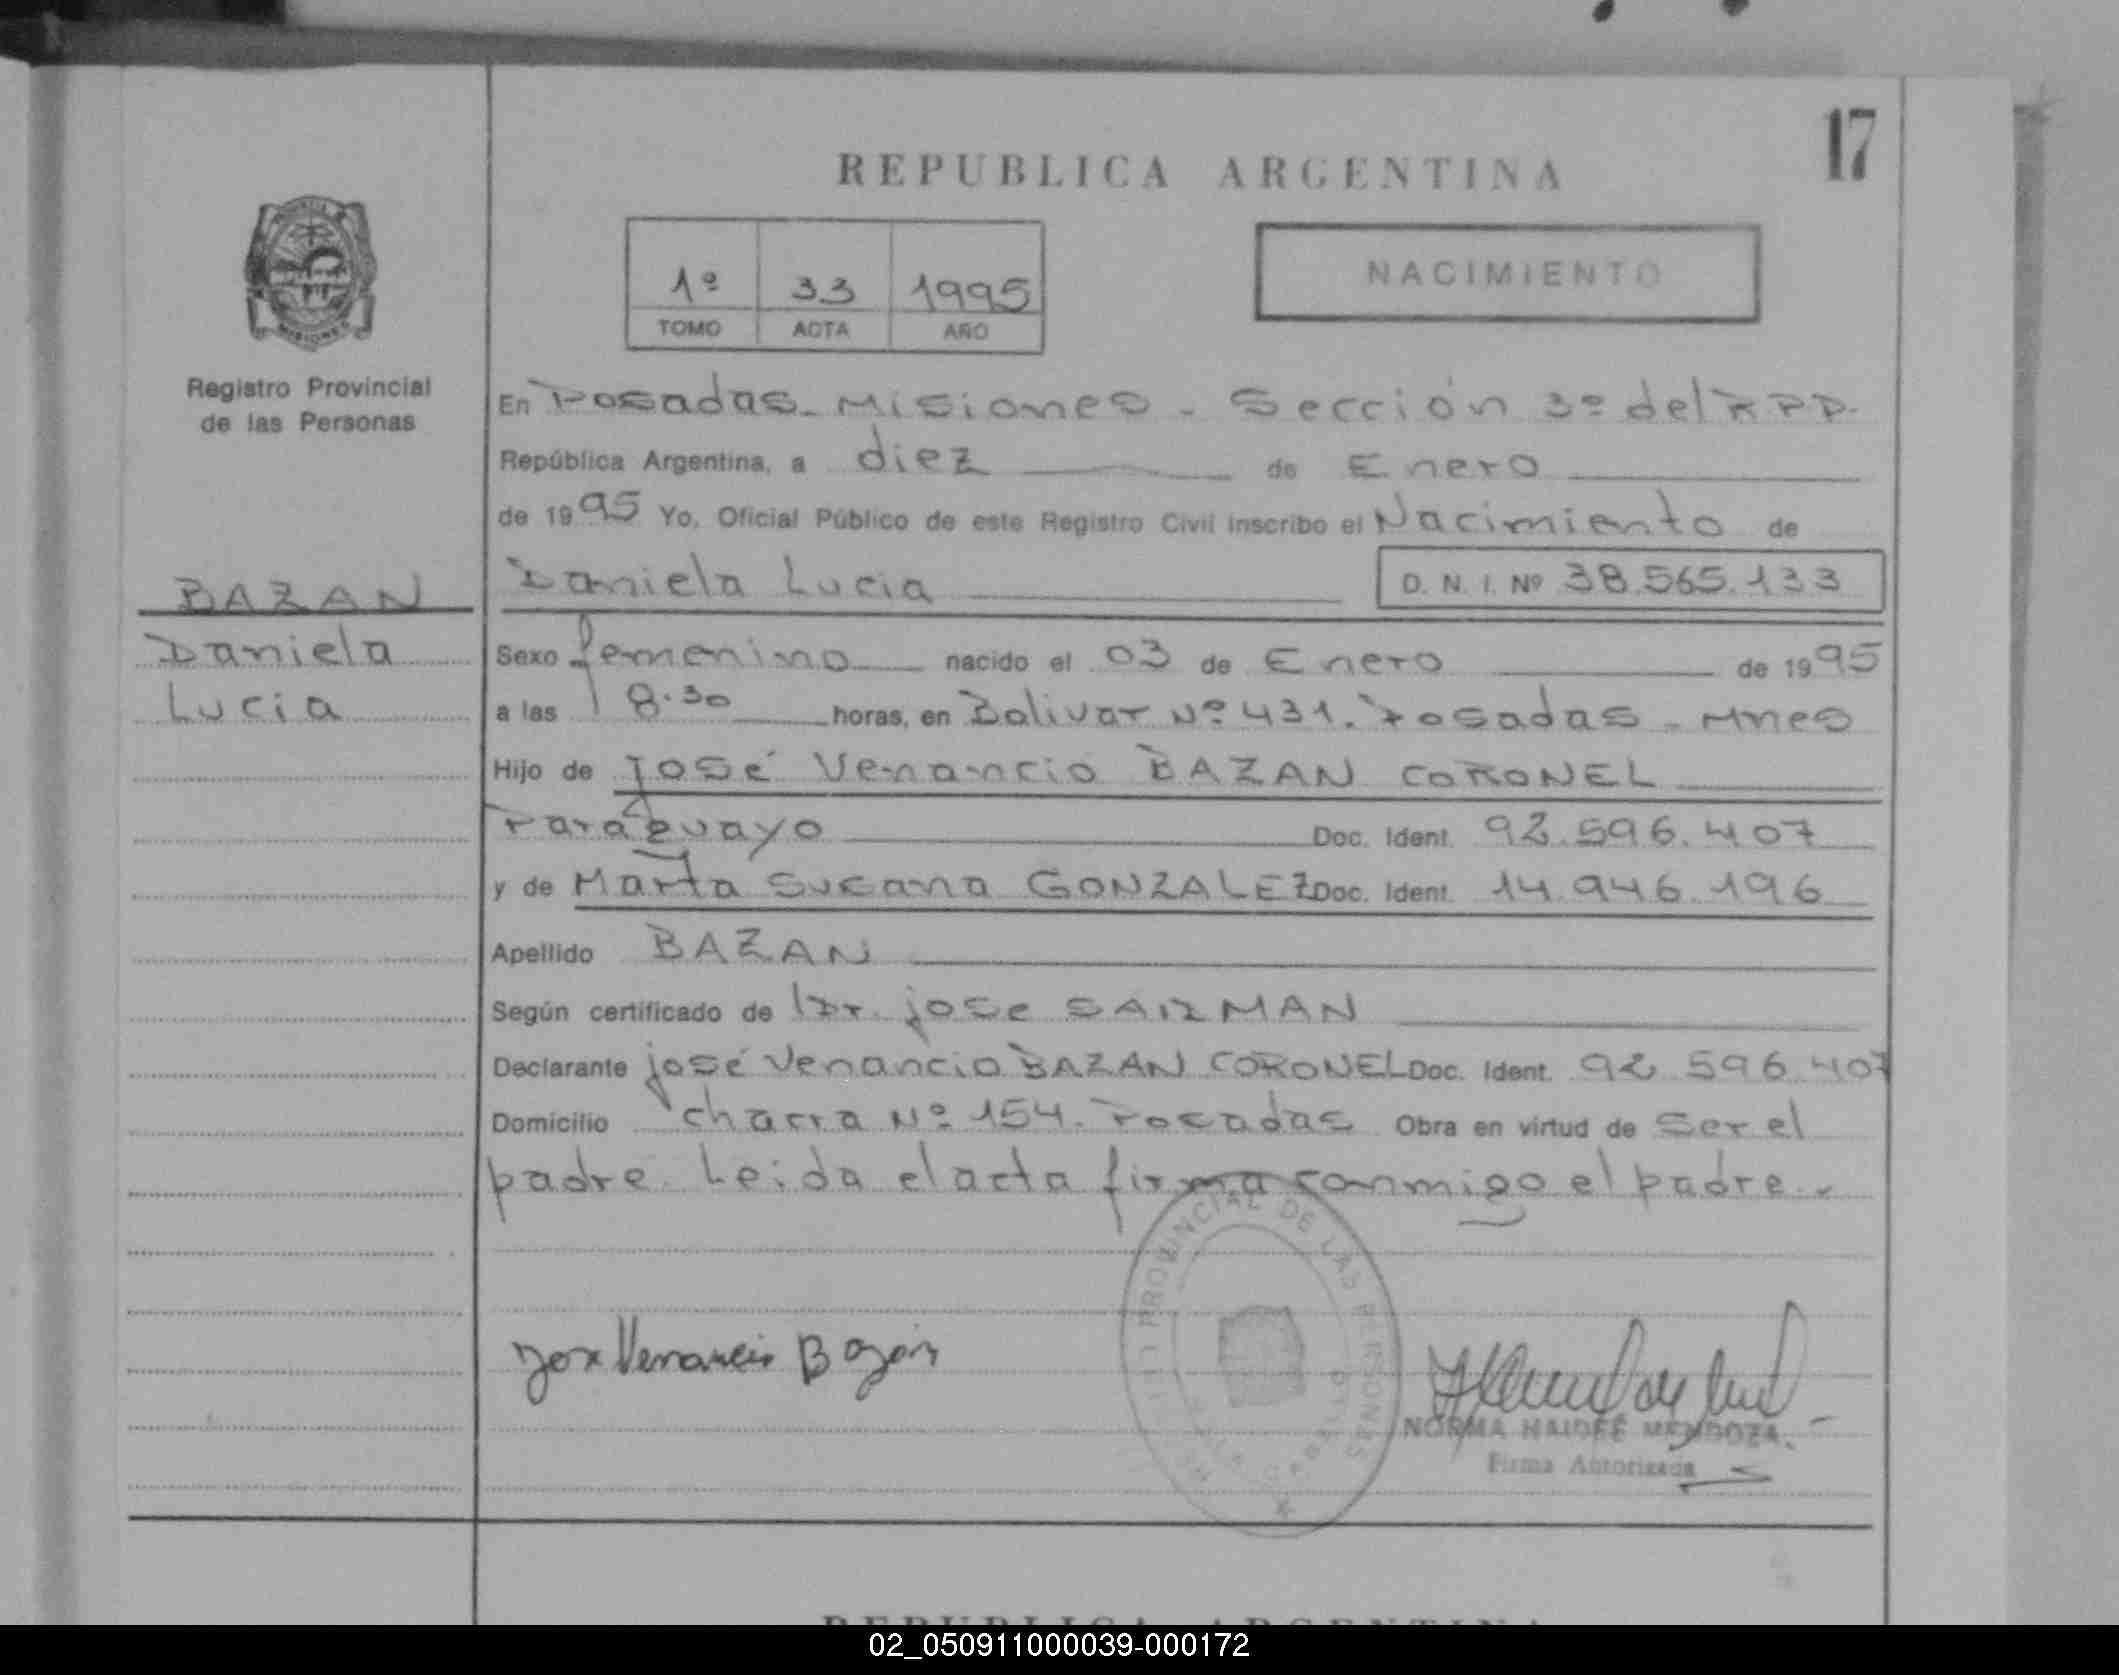 17
REPUBLICA ARGENTINA
1º 33 1995
TOMO ACTA AÑO
NACIMIENTO
PROVINCIA MISIONES
Registro Provincial
de las Personas
En Posadas - Misiones - Sección 3º del RPP.
República Argentina, a diez de Enero
de 1995 Yo, Oficial Público de este Registro Civil inscribo el Nacimiento de
Daniela Lucia D. N. I. Nº 38.565.133
BAZAN
Daniela
Lucia
Sexo femenino nacido el 03 de Enero de 1995
a las 8.30 horas, en Bolivar Nº 431. Posadas - Mnes
Hijo de José Venancio BAZAN CORONEL
Paraguayo Doc. Ident. 92.596.407
y de Marta Susana GONZALEZ Doc. Ident. 14.946.196
Apellido BAZAN
Según certificado de Dr. jose
Declarante josé Venancio BAZAN CORONEL Doc. Ident. 92 596 407
Domicilio chacra Nº 154. Posadas Obra en virtud de ser el
padre. Leida el acta firma conmigo el padre.-
Jose Venancio Bazan
PROVINCIAL DE LAS PERSONAS
VILLA CABELLO
NORMA HAIDEÉ MENDOZA
Firma Autorizada
REPUBLICA ARGENTINA
02_050911000039-000172